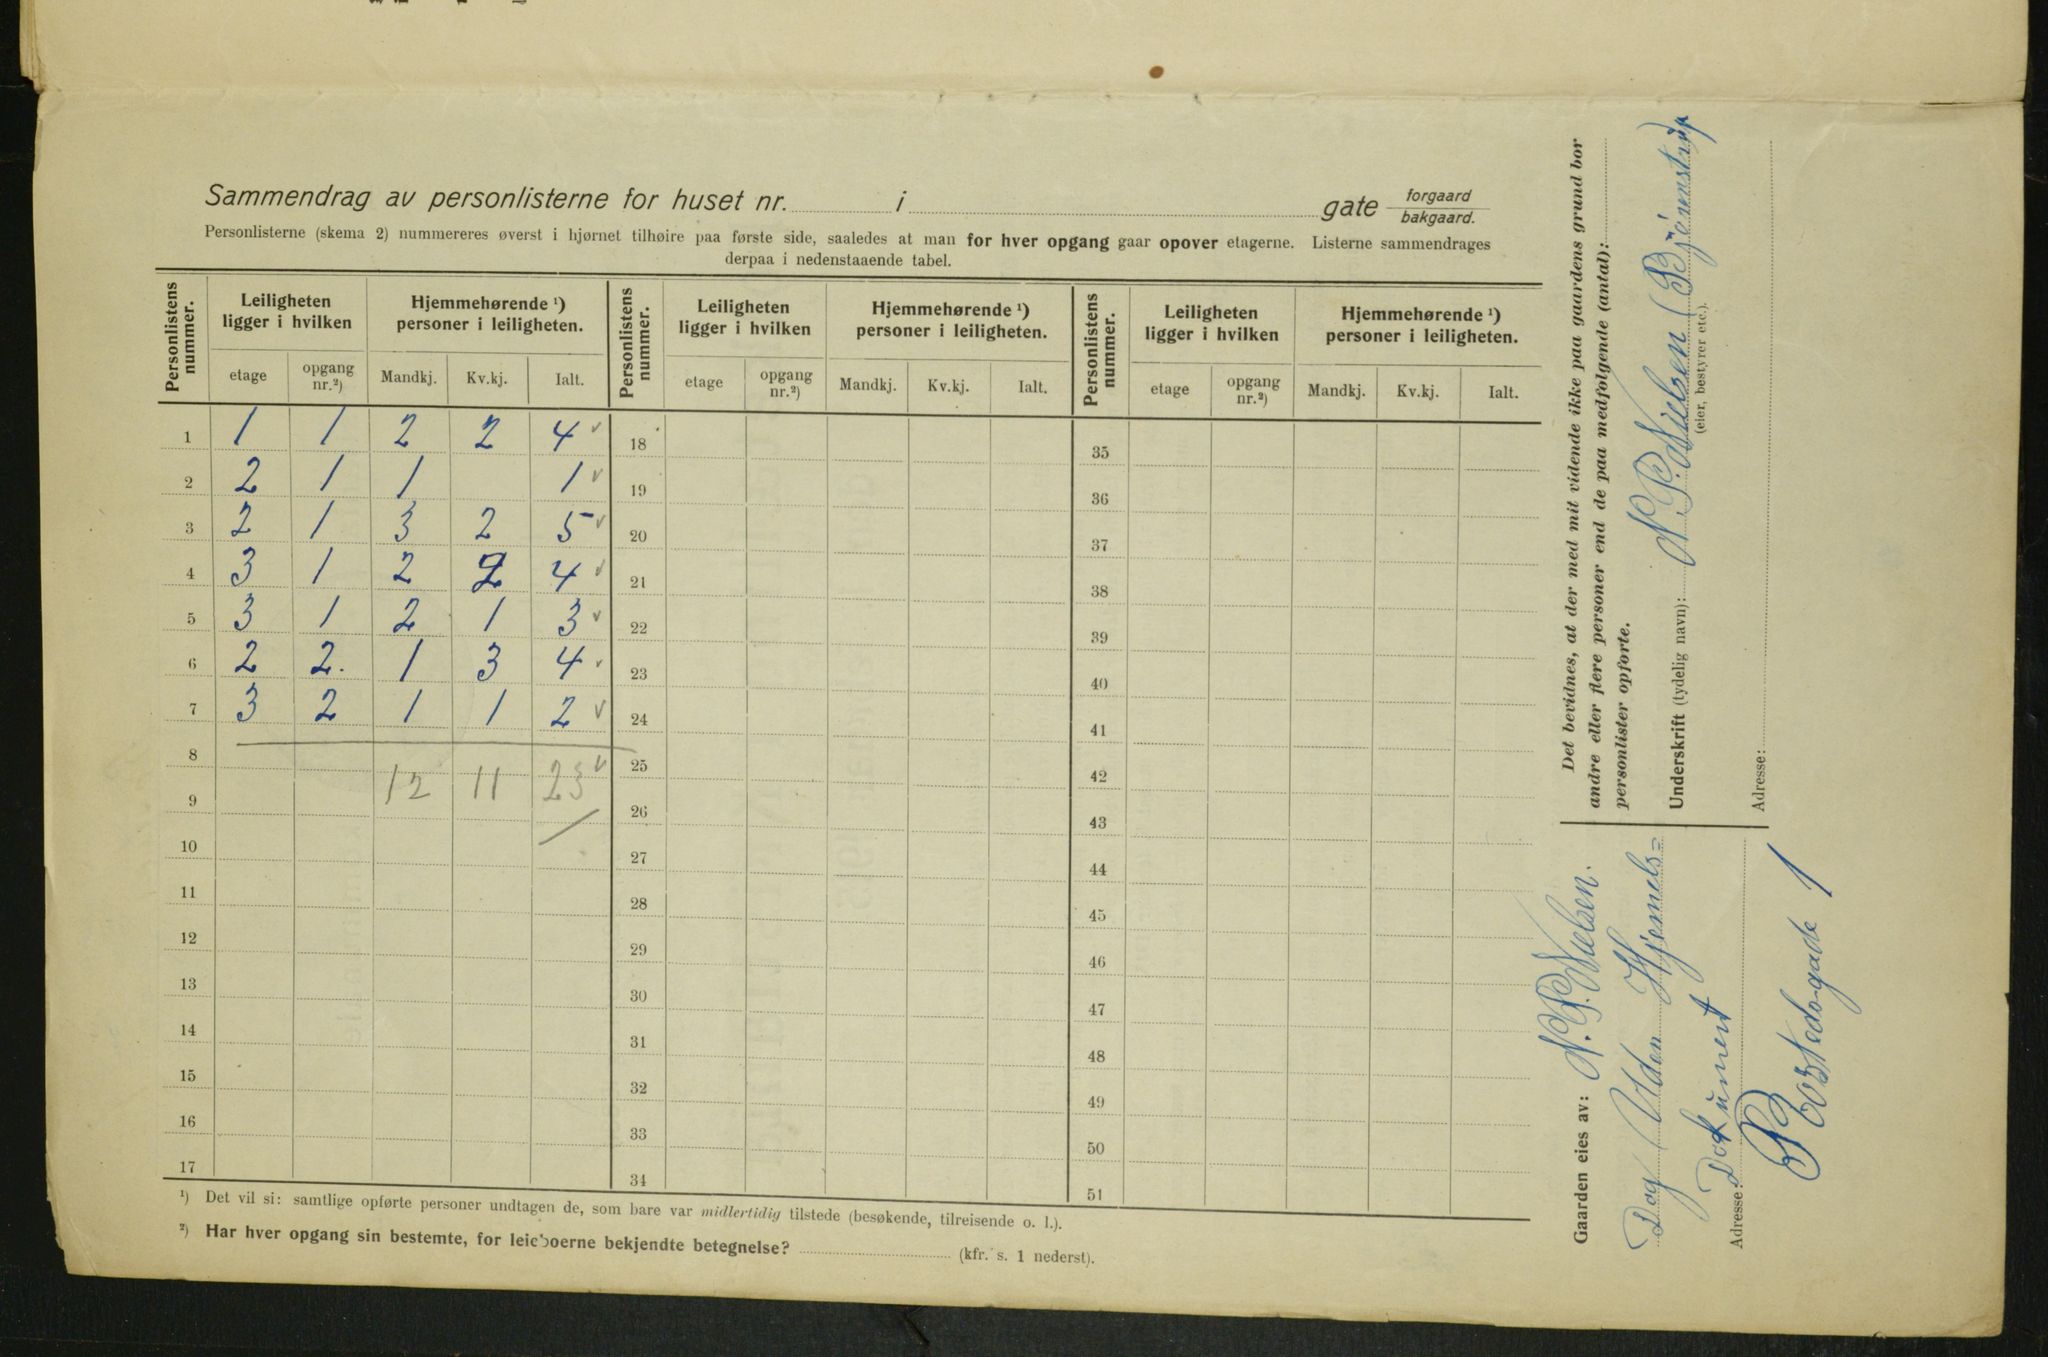 Sammendrag av personlisterne for huset nr. i gate forgaard bakgaard.
Personlisterne (skema 2) nummereres øverst i hjørnet tilhøire paa første side, saaledes at man for hver opgang gaar opover etagerne. Listerne sammendrages
derpaa i nedenstaaende tabel.
Personlistens nummer. Leiligheten ligger i hvilken Hjemmehørende ¹) personer i leiligheten. Personlistens nummer. Leiligheten ligger i hvilken Hjemmehørende ¹) personer i leiligheten. Personlistens nummer. Leiligheten ligger i hvilken Hjemmehørende ¹) personer i leiligheten.
etage opgang nr.²) Mandkj. Kv.kj. Ialt. etage opgang nr.²) Mandkj. Kv.kj. Ialt. etage opgang nr.²) Mandkj. Kv.kj. Ialt.
1 1 1 2 2 4 ✓ 18 35
2 2 1 1 1 ✓ 19 36
3 2 1 3 2 5 ✓ 20 37
4 3 1 2 2 4 ✓ 21 38
5 3 1 2 1 3 ✓ 22 39
6 2 2. 1 3 4 ✓ 23 40
7 3 2 1 1 2 ✓ 24 41
8 25 42
9 12 11 23 ✓ 26 43
10 27 44
11 28 45
12 29 46
13 30 47
14 31 48
15 32 49
16 33 50
17 34 51
¹) Det vil si: samtlige opførte personer undtagen de, som bare var midlertidig tilstede (besøkende, tilreisende o. l.).
²) Har hver opgang sin bestemte, for leieboerne bekjendte betegnelse? (kfr. s. 1 nederst).
Det bevidnes, at der med mit vidende ikke paa gaardens grund bor
andre eller flere personer end de paa medfølgende (antal):
personlister opførte.
Underskrift (tydelig navn): N. P. Nielsen (Bjerrnstrup
(eier, bestyrer etc.).
Adresse:
Gaarden eies av: N. P. Nielsen.
Dog Uden Hjemels=
Dokument
Adresse: Borstedsgade 1